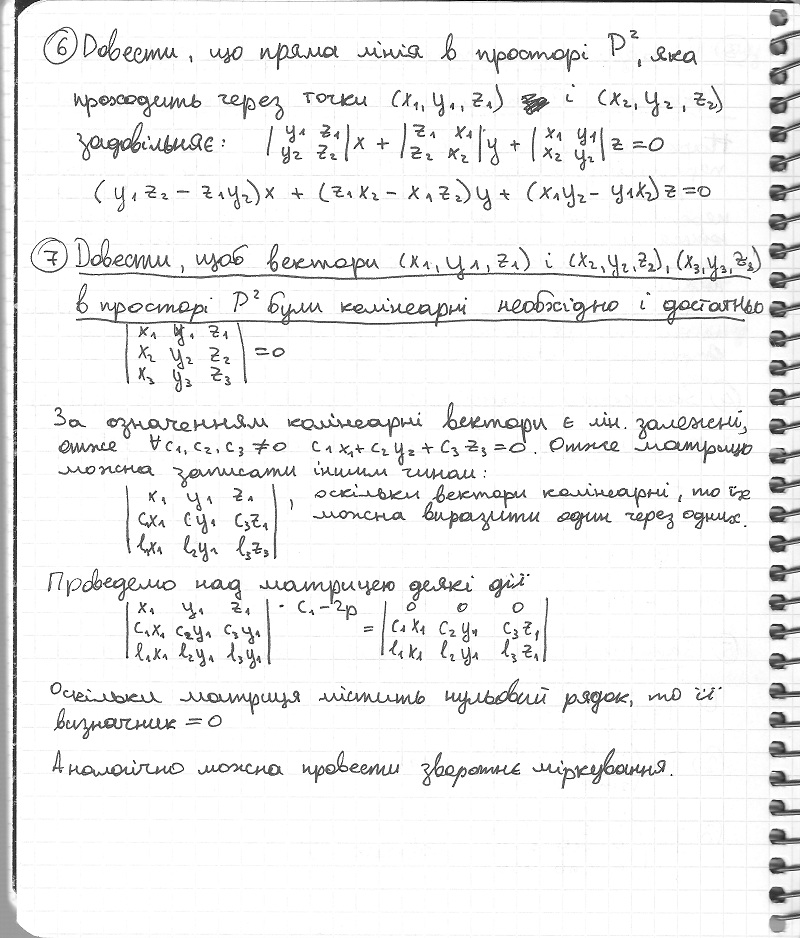 ⑥ Довести, що пряма лінія в просторі P², яка
проходить через точки (x₁, y₁, z₁) і (x₂, y₂, z₂)
задовільняє: |y₁ z₁; y₂ z₂|x + |z₁ x₁; z₂ x₂|y + |x₁ y₁; x₂ y₂|z = 0
(y₁z₂ − z₁y₂)x + (z₁x₂ − x₁z₂)y + (x₁y₂ − y₁x₂)z = 0
⑦ Довести, щоб вектари (x₁, y₁, z₁) і (x₂, y₂, z₂), (x₃, y₃, z₃)
в просторі P² були колінеарні необхідно і достатньо
|x₁ y₁ z₁|
|x₂ y₂ z₂| = 0
|x₃ y₃ z₃|
За означенням колінеарні вектари є лін. залежні,
отже ∀ c₁, c₂, c₃ ≠ 0 c₁x₁ + c₂y₂ + c₃z₃ = 0. Отже матрицю
можна записати іншим чином:
|x₁ y₁ z₁|
|c₁x₁ cy₁ c₃z₁| , оскільки вектари колінеарні, то їх
|l₁x₁ l₂y₁ l₃z₃| можна виразити один через одних.
Проведемо над матрицею деякі дії
|x₁ y₁ z₁| · c₁ − 2р |0 0 0|
|c₁x₁ c₂y₁ c₃y₁| = |c₁x₁ c₂y₁ c₃z₁|
|l₁x₁ l₂y₁ l₃y₁| |l₁x₁ l₂y₁ l₃z₁|
Оскільки матриця містить нульовий рядок, то її
визначник = 0
Аналогічно можна провести зворотнє міркування.